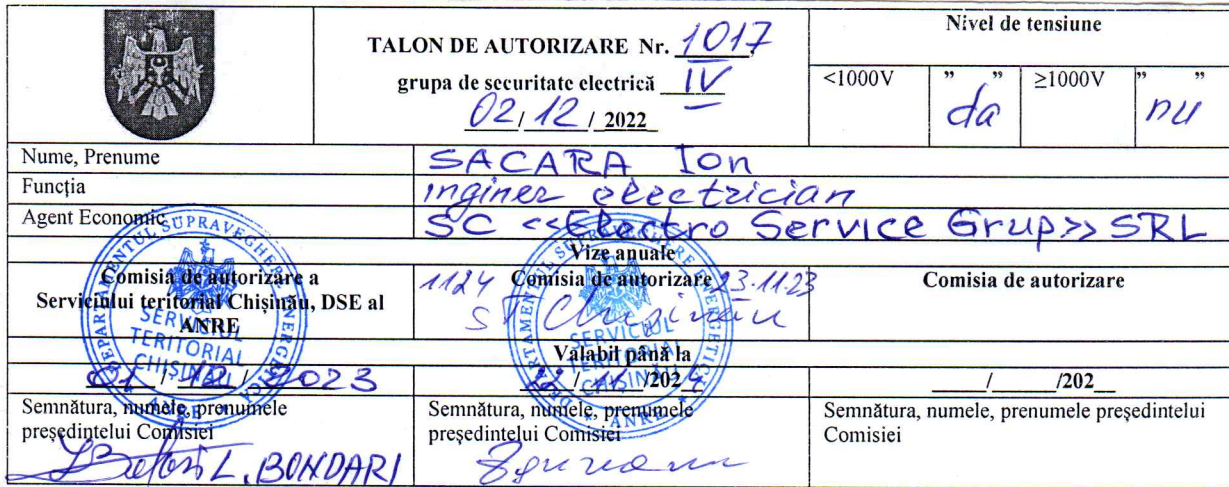 TALON DE AUTORIZARE Nr. 1017
grupa de securitate electrică IV
02/ 12 / 2022
Nivel de tensiune
<1000V " da " ≥1000V " nu "
Nume, Prenume SACARA Ion
Funcția inginer electrician
Agent Economic SC <<Electro Service Grup>> SRL
Vize anuale
Comisia de autorizare a
Serviciului teritorial Chișinău, DSE al
ANRE
1124 Comisia de autorizare 23.11.23
ST Chișinău
Comisia de autorizare
Valabil până la
01 / 12 / 2023
22 / 11 /2024
/ /202
Semnătura, numele, prenumele
președintelui Comisiei
L. BONDARI
Semnătura, numele, prenumele
președintelui Comisiei
Semnătura, numele, prenumele președintelui
Comisiei
DEPARTAMENTUL SUPRAVEGHERE ENERGETICĂ
ANRE
SERVICIUL
TERITORIAL
CHIȘINĂU
DEPARTAMENTUL SUPRAVEGHERE ENERGETICĂ
ANRE
SERVICIUL
TERITORIAL
CHIȘINĂU